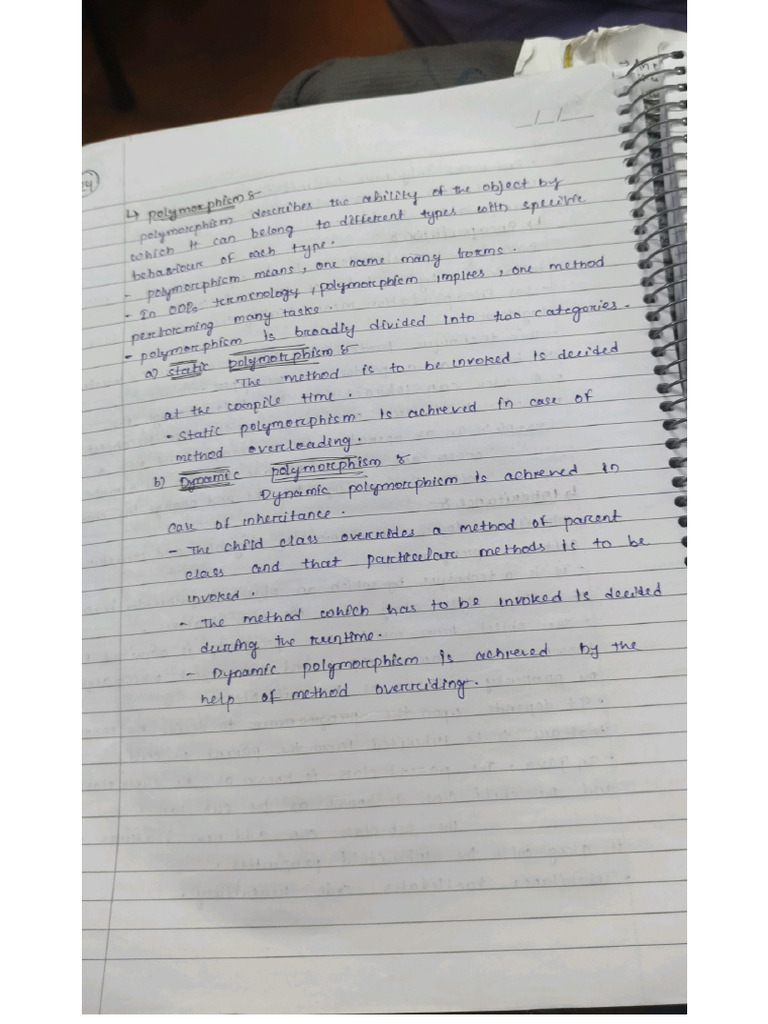 4) polymorphism :-
polymorphism describes the ability of the object by
which it can belong to different types with specific
behaviour of each type.
- polymorphism means, one name many forms.
- In OOPs terminology, polymorphism implies, one method
performing many tasks.
- polymorphism is broadly divided into two categories.
a) static polymorphism :-
The method is to be invoked is decided
at the compile time.
- Static polymorphism is achieved in case of
method overloading.
b) Dynamic polymorphism :-
Dynamic polymorphism is achieved in
case of inheritance.
- The child class overrides a method of parent
class and that particular methods is to be
invoked.
- The method which has to be invoked is decided
during the runtime.
- Dynamic polymorphism is achieved by the
help of method overriding.